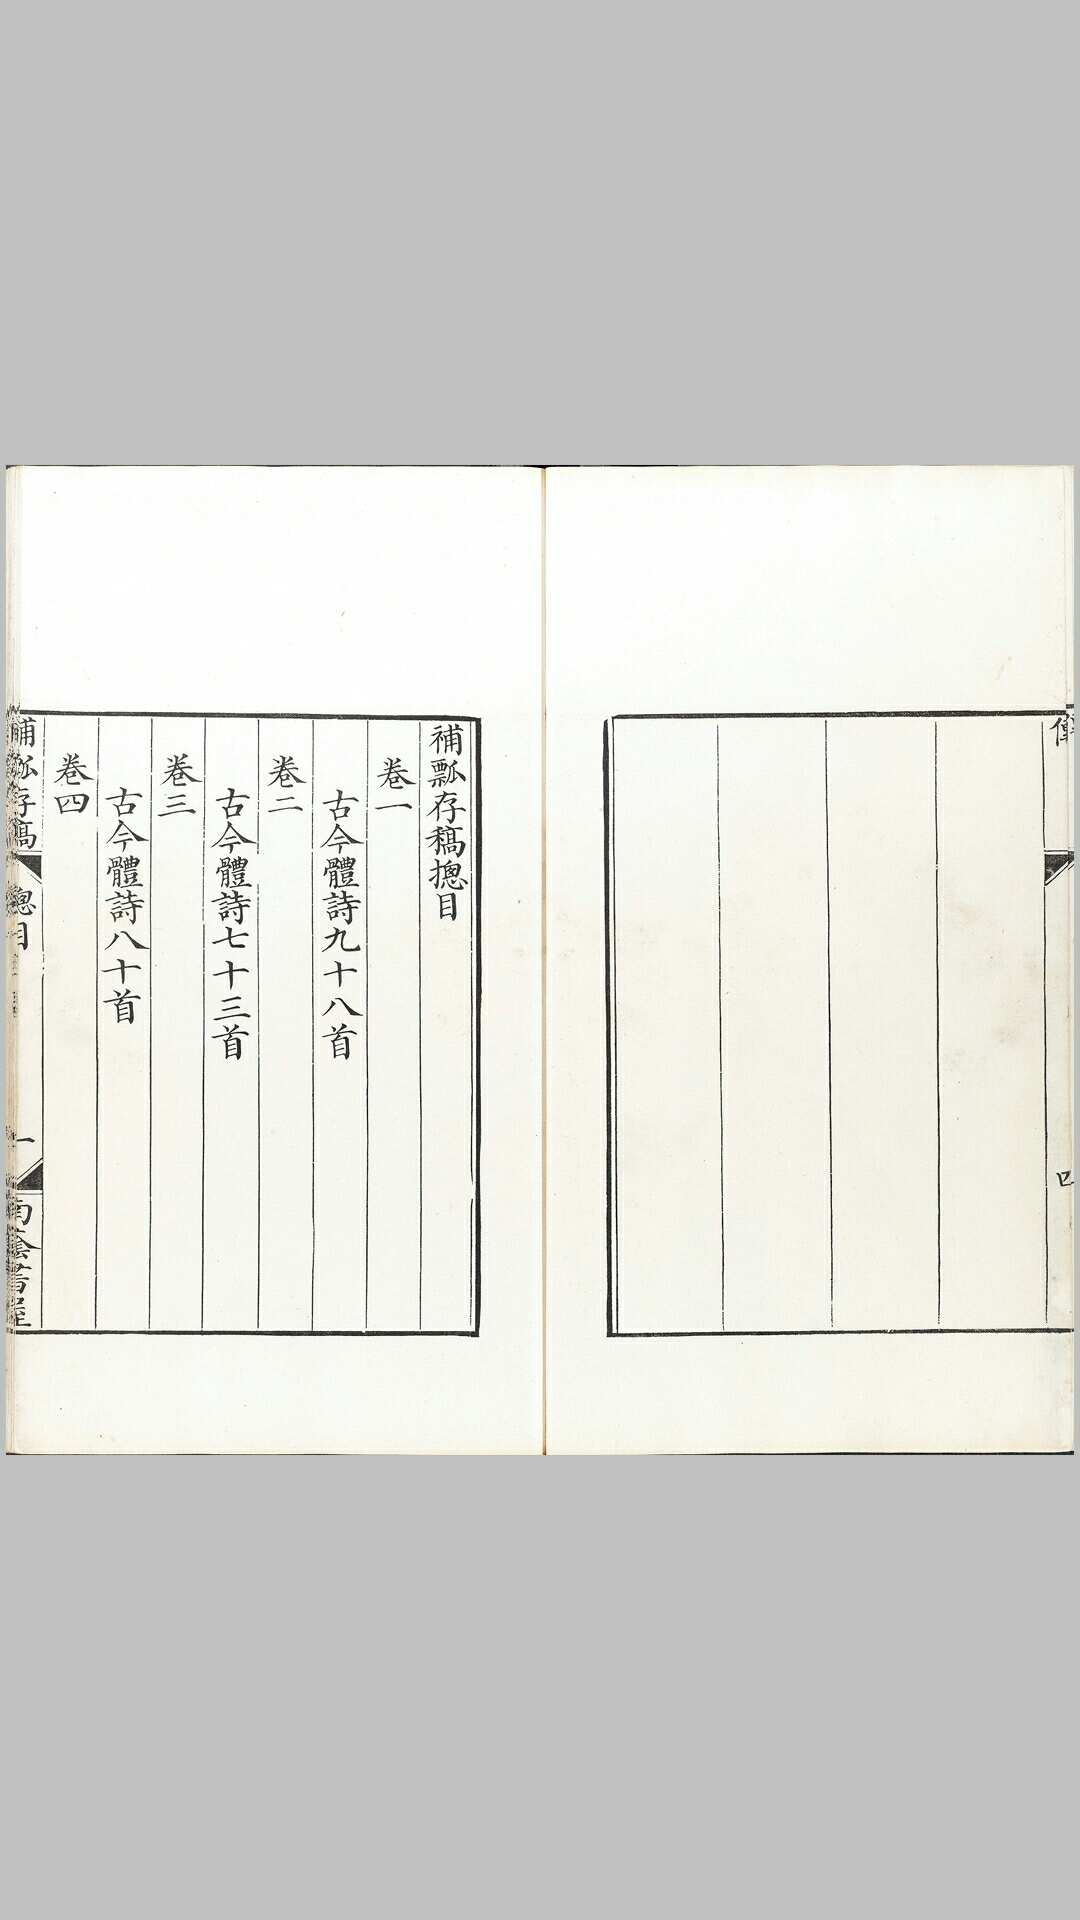 傳
四
補瓢存稿摠目
卷一
古今體詩九十八首
卷二
古今體詩七十三首
卷三
古今體詩八十首
卷四
補瓢存稿
摠目
一
南蔭書屋